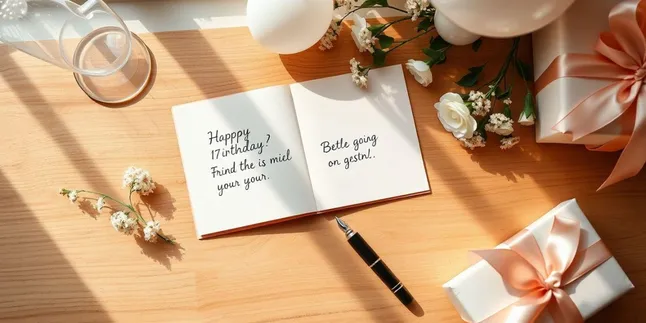 Happpy
17 irthday?
Frind the is miel
your your.
Betle going
on gestnl..